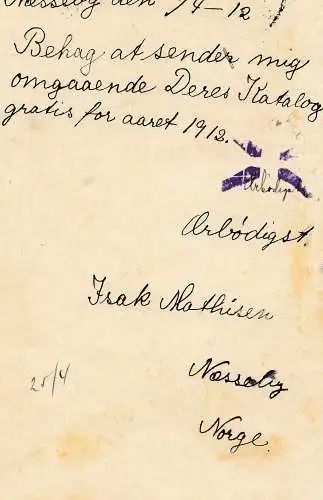 Næsseby den 14-12
Behag at sender mig
omgaaende Deres Katalog
gratis for aaret 1912.
Ærbødigst.
Isak Mathisen
25/4
Næsseby
Norge.